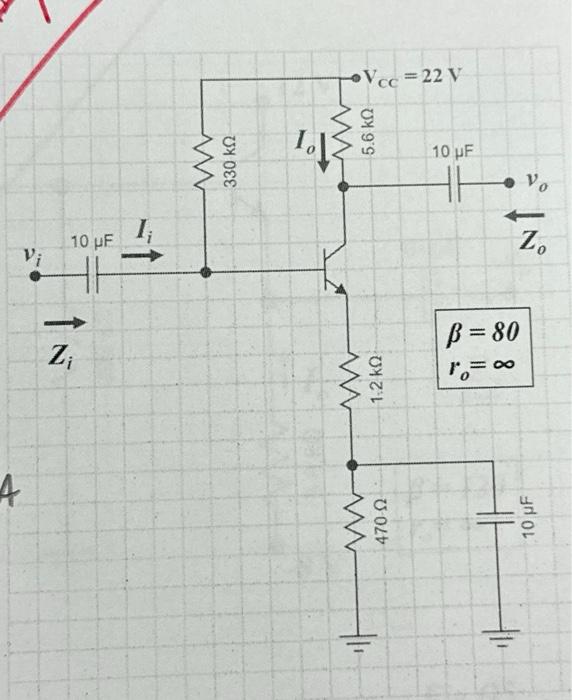 V_CC = 22 V
5.6 kΩ
I_o
330 kΩ
10 µF
v_o
Z_o
10 µF
I_i
v_i
Z_i
β = 80
r_o = ∞
1.2 kΩ
A
470 Ω
10 µF